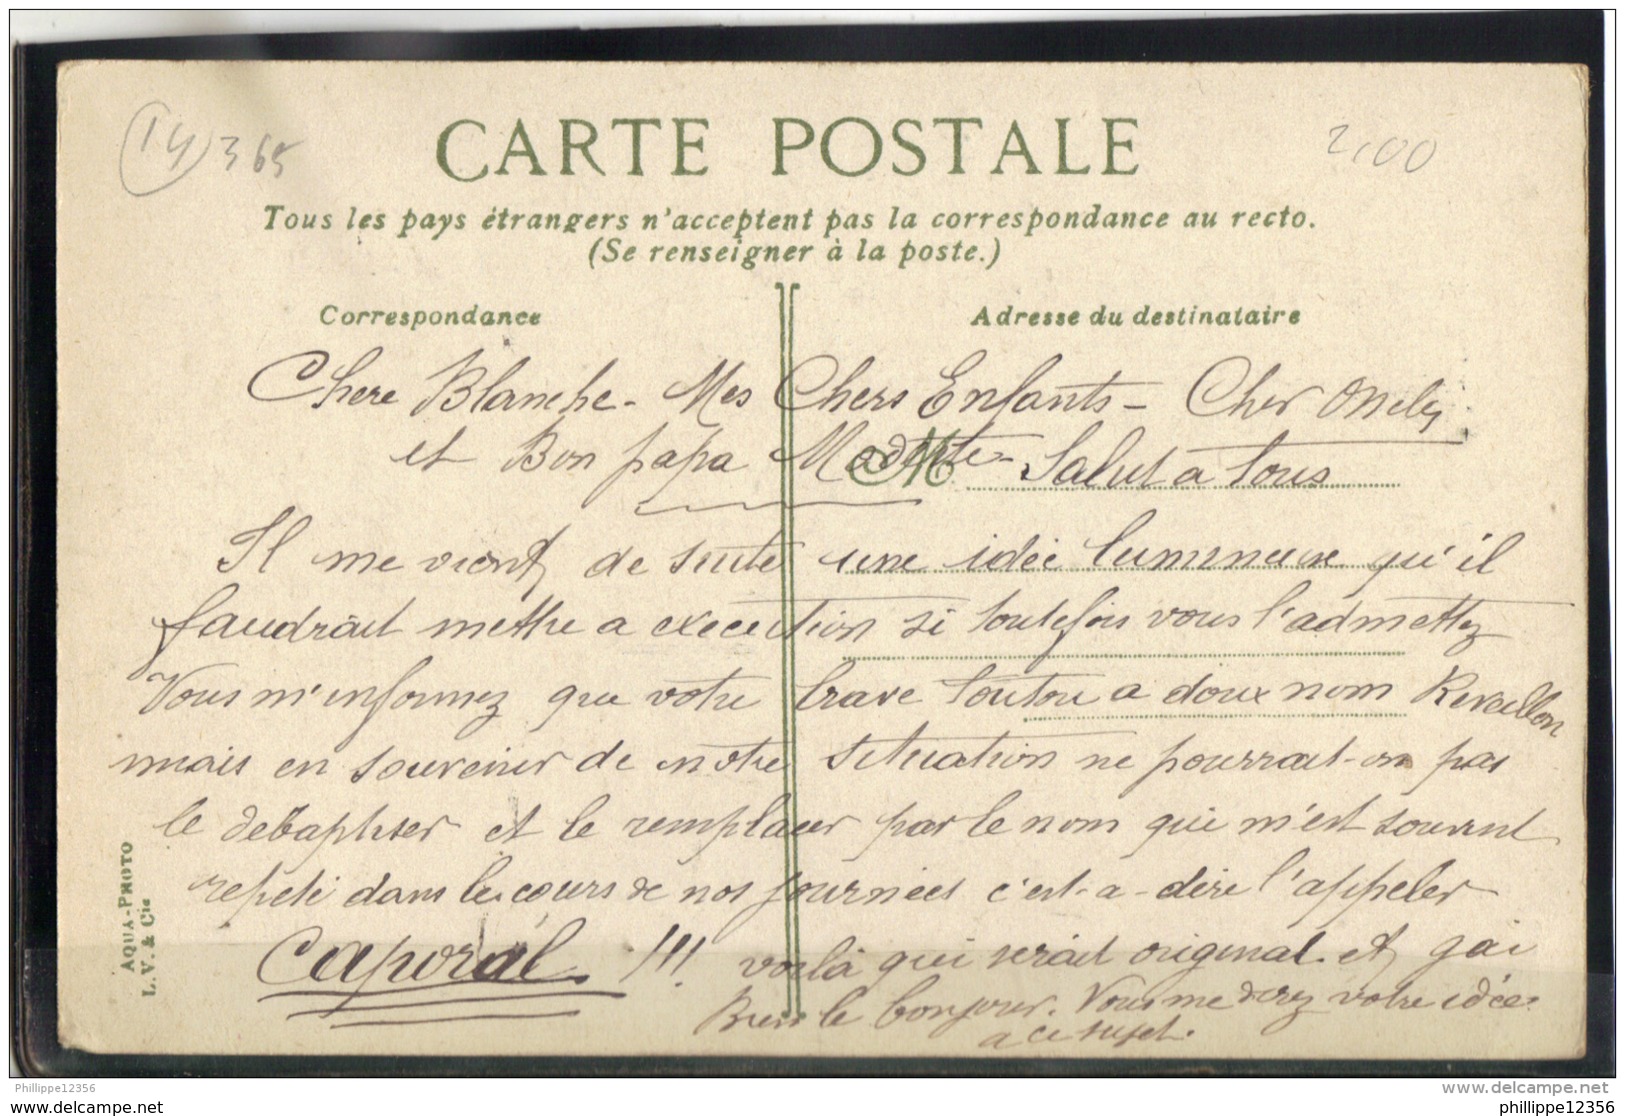 14 365
2,00
CARTE POSTALE
Tous les pays étrangers n'acceptent pas la correspondance au recto.
(Se renseigner à la poste.)
Correspondance
Adresse du destinataire
Chere Blanche - Mes Chers Enfants - Cher
et Bon papa Modeste - Salut a tous
M
Il me vient de suite une idée lumineuse qu'il
faudrait mettre a execution si toutefois vous l'admettez
Vous m'informez que votre brave toutou a doux nom Reveillon
mais en souvenir de notre situation ne pourrait-on pas
le debaptiser et le remplacer par le nom qui m'est souvent
repeté dans le cours de nos journées c'est-a-dire l'appeler
Caporal !!! voila qui serait original et gai
Bien le bonjour. Vous me direz votre idée
a ce sujet.
AQUA-PHOTO
L.V. & Cie
Philippe12356
www.delcampe.net
philippe12356
phillippe12356